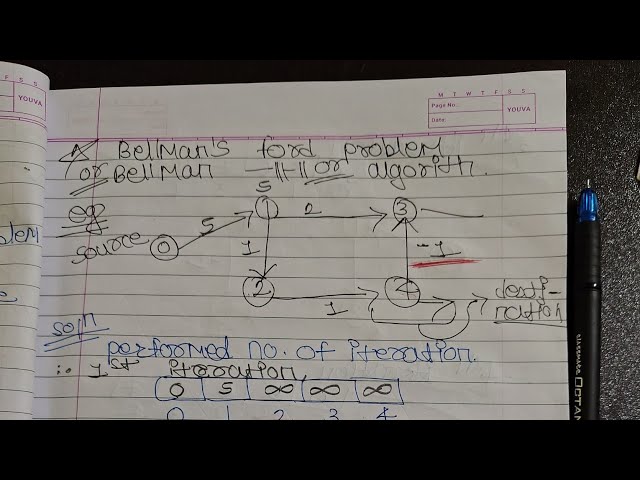 M T W T F S S
Page No.:
Date:
YOUVA
F S S
YOUVA
BellMan's ford problem
or BellMan —||—|| or algorith.
eg
5
1 2 3
source 0 5
1 -1
2 1 4
desti-
nation
soln
performed no. of iteration.
∴ 1st iteration,
0 5 ∞ ∞ ∞
0 1 2 3 4
OCTAN